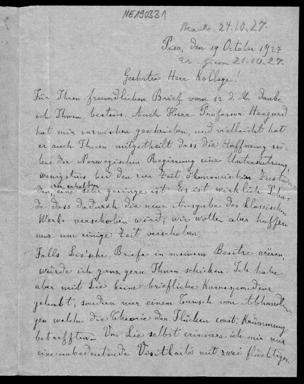 NE190331
Beantw. 24.10.27.
Pisa, den 19 October 1927
Er. Giess. 21.10.27.
Geehrter Herr Kollege!
Für Ihren freundlichen Brief vom 12 d. M. danke
ich Ihnen bestens. Auch Herr Professor Heegard
hat mir inzwischen geschrieben, und vielleicht hat
er auch Ihnen mitgetheilt dass die Hoffnung
der Norwegischen Regierung eine Unterstützung,
wenigstens bei den zur Zeit ökonomischen
sehr geringe ist. Es ist wirklich
dass dadurch die neue Ausgabe des klassischen
Werks verschoben wird; wir wollen aber hoffen
nur um einige Zeit verschoben.
Falls Lie'sche Briefe in meinem Besitze wären,
würde ich ganz gern Ihnen schicken. Ich habe
aber mit Lie keine briefliche Korrespondenz
gehabt, sondern nur einen Tausch von Abhandlun-
gen welche die Theorie der Flächen const. Krümmung
betrafen. Von Lie selbst erinnere ich mir nur
eine unbedeutende Visitkarte mit zwei flüchtigen